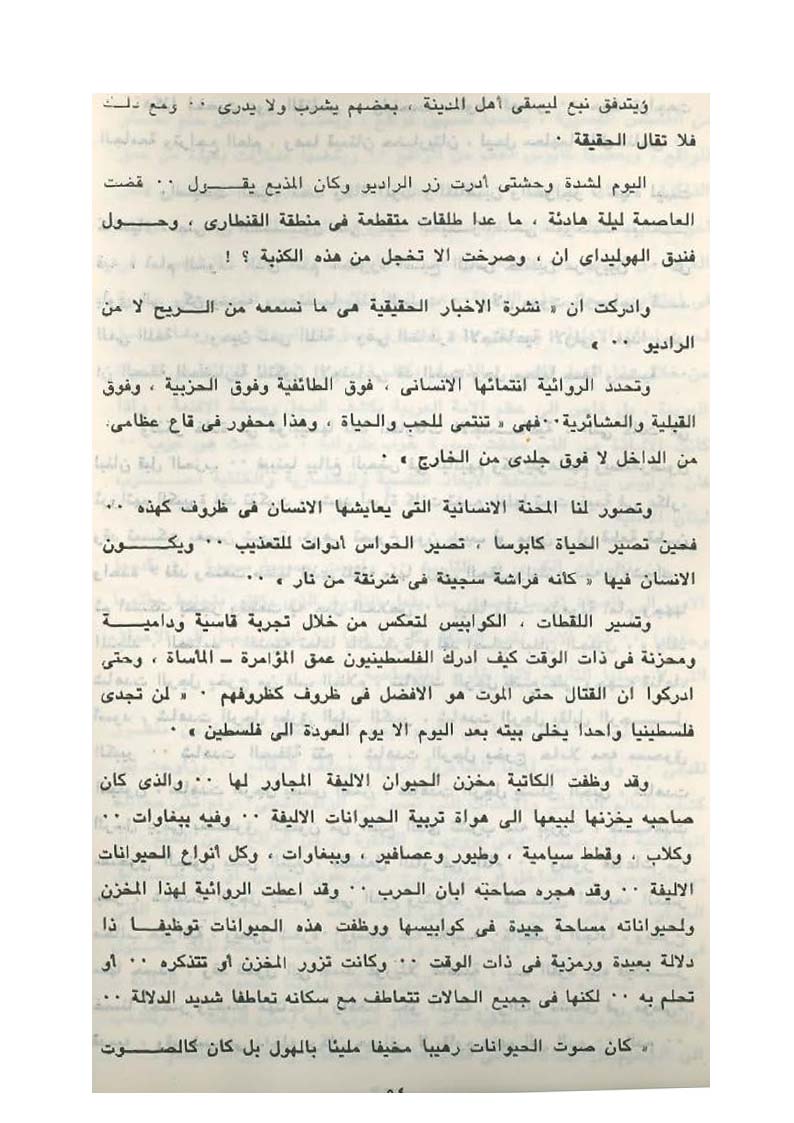 ويتدفق نبع ليسقى أهل المدينة ، بعضهم يشرب ولا يدرى ٠٠ ومع ذلك
فلا تقال الحقيقة ٠
اليوم لشدة وحشتى أدرت زر الراديو وكان المذيع يقـــول ٠٠ قضت
العاصمة ليلة هادئة ، ما عدا طلقات متقطعة فى منطقة القنطارى ، وحـــول
فندق الهوليداى ان ، وصرخت الا تخجل من هذه الكذبة ؟ !
وادركت ان « نشرة الاخبار الحقيقية هى ما نسمعه من الـــريح لا من
الراديو ٠٠ »
وتحدد الروائية انتمائها الانسانى ، فوق الطائفية وفوق الحزبية ، وفوق
القبلية والعشائرية٠٠فهى « تنتمى للحب والحياة ، وهذا محفور فى قاع عظامى.
من الداخل لا فوق جلدى من الخارج » ٠
وتصور لنا المحنة الانسانية التى يعايشها الانسان فى ظروف كهذه ٠٠
فحين تصير الحياة كابوسا ، تصير الحواس أدوات للتعذيب ٠٠ ويكـــون
الانسان فيها « كأنه فراشة سجينة فى شرنقة من نار » ٠٠
وتسير اللقطات ، الكوابيس لتعكس من خلال تجربة قاسية وداميـــة
ومحزنة فى ذات الوقت كيف ادرك الفلسطينيون عمق المؤامرة ــ المأساة ، وحتى
ادركوا ان القتال حتى الموت هو الافضل فى ظروف كظروفهم ٠ « لن تجدى
فلسطينيا واحدا يخلى بيته بعد اليوم الا يوم العودة الى فلسطين » ٠
وقد وظفت الكاتبة مخزن الحيوان الاليفة المجاور لها ٠٠ والذى كان
صاحبه يخزنها لبيعها الى هواة تربية الحيوانات الاليفة ٠٠ وفيه ببغاوات ٠٠
وكلاب ، وقطط سيامية ، وطيور وعصافير ، وببغاوات ، وكل أنواع الحيوانات
الاليفة ٠٠ وقد هجره صاحبه ابان الحرب ٠٠ وقد اعطت الروائية لهذا المخزن
ولحيواناته مساحة جيدة فى كوابيسها ووظفت هذه الحيوانات توظيفـــا ذا
دلالة بعيدة ورمزية فى ذات الوقت ٠٠ وكانت تزور المخزن أو تتذكره ٠٠ أو
تحلم به ٠٠ لكنها فى جميع الحالات تتعاطف مع سكانه تعاطفا شديد الدلالة ٠٠
« كان صوت الحيوانات رهيبا مخيفا مليئا بالهول بل كان كالصـــوت